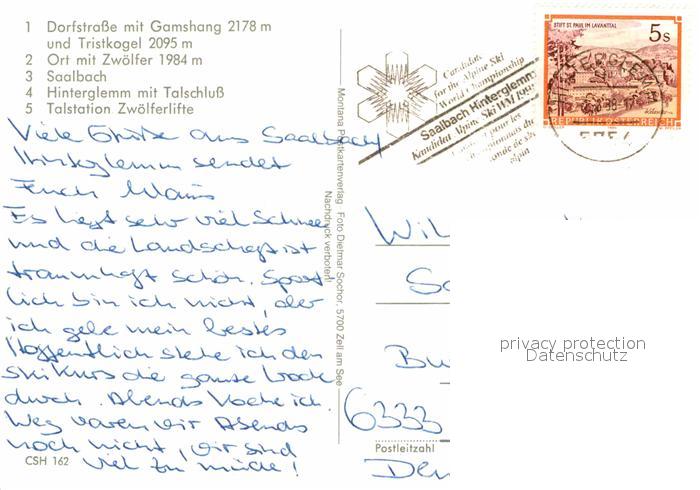 1 Dorfstraße mit Gamshang 2178 m
und Tristkogel 2095 m
2 Ort mit Zwölfer 1984 m
3 Saalbach
4 Hinterglemm mit Talschluß
5 Talstation Zwölferlifte
Viele Grüße aus Saalbach
Hinterglemm sendet
Euch Klaus
Es liegt sehr viel Schnee
und die Landschaft ist
traumhaft schön. Sport
lich bin ich nicht, aber
ich gebe mein bestes
Hoffentlich stehe ich den
Skikurs die ganze Woche
durch. Abends koche ich.
Weg waren wir Abends
noch nicht, wir sind
viel zu müde!
CSH 162
Montana Postkartenverlag Foto Dietmar Sochor, 5700 Zell am See
Nachdruck verboten!
Candidate
for the Alpine Ski
World Championship
Saalbach Hinterglemm
Kandidat Alpine Ski WM 1991
STIFT ST. PAUL IM LAVANTTAL
5 S
REPUBLIK ÖSTERREICH
Wil
Sc
Bu
6333
Postleitzahl
Den
privacy protection
Datenschutz